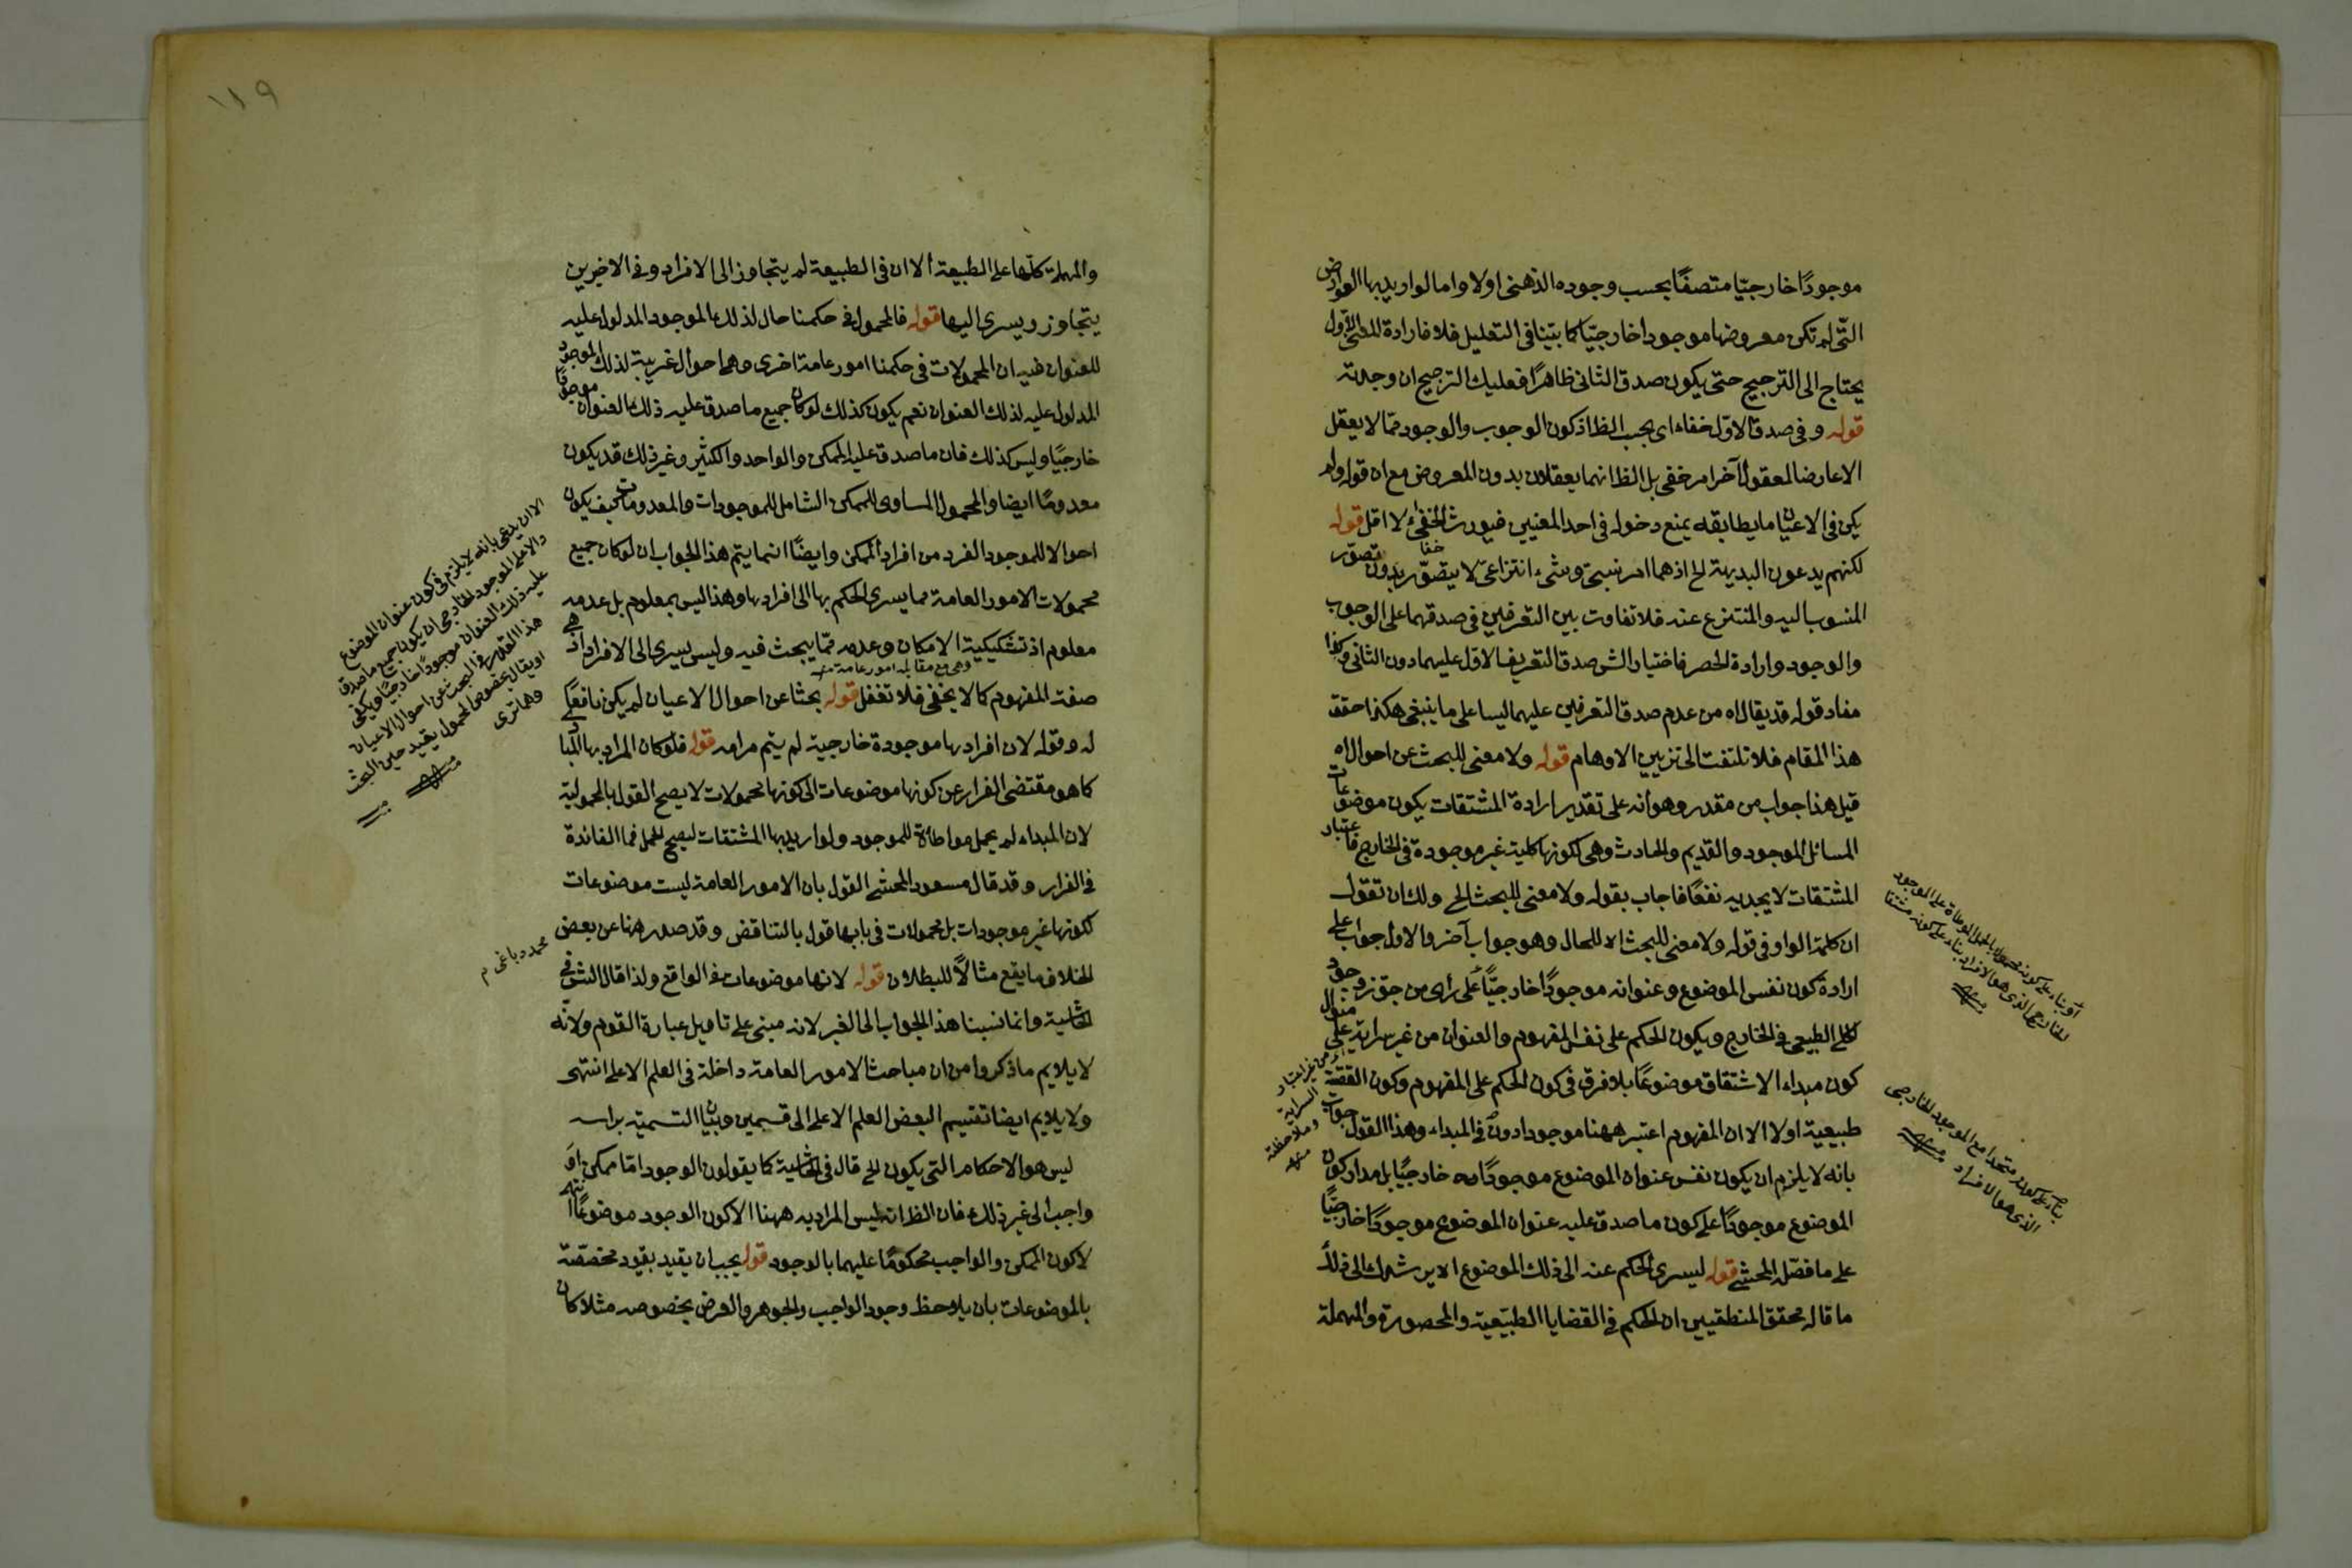 موجودًا خارجيّا متصفًا بحسب وجوده الذهنى اولا واما لو اريد بها العوارض
التّى لم تكن معروضها موجودا خارجيّا كما بيّنا فى التعليل فلا فارادة المعنى الاوّل
يحتاج الى الترجيح حتى يكون صدق الثانى ظاهرًا فعليك الترجيح ان وجدته
قوله و فى صدق الاوّل خفاء اى بحسب الظ اذ كون الوجوب والوجود ممّا لا يعقل
الا عارضا لمعقول آخر امر خفى بل الظ انهما يعقلان بدون المعروض مع ان قوله ولم
يكن فى الاعيان ما يطابقه يمنع دخوله فى احد المعنيين فيورث الخفاء لا اقل قوله
لكنهم يدعون البديهة الخ اذ هما امر نسبىّ وشىء انتزاعىّ لا يتصوّر بدون تصوّر
المنسوب اليه والمنتزع عنه فلا تفاوت بين التعرفين فى صدقهما على الوجوب
والوجود وارادة الحصر فاختيار الش صدق التعريف الاول عليهما دون الثانى وكذا
مفاد قوله قد يقال اه من عدم صدق التعرفين عليهما ليسا على ما ينبغى هكذا حقق
هذا المقام فلا تلتفت الى تزيين الاوهام قوله ولا معنى للبحث عن احوال اه
قيل هذا جواب من مقدر وهو انه على تقدير ارادة المشتقات يكون موضوعات
المسائل الموجود والقديم والحادث وهى لكونها كلية غير موجودة فى الخارج فاعتبار
المشتقات لا يجديه نفعًا فاجاب بقوله ولا معنى للبحث الخ ولك ان تقول
ان كلمة الواو فى قوله ولا معنى للبحث اه للحال وهو جواب آخر والاول جواب على
ارادة كون نفس الموضوع وعنوانه موجودًا خارجيّاً على رأى من جوّز وجود
الكلى الطبيعى فى الخارج ويكون الحكم على نفس المفهوم والعنوان من غير سراية على منوال
كون مبداء الاشتقاق موضوعًا بلا فرق فى كون الحكم على المفهوم وكون القضية
طبيعية اولا الا ان المفهوم اعتبر ههنا موجودا دون فى المبداء وهذا القول جواب
بانه لا يلزم ان يكون نفس عنوان الموضوع موجودًا خارجيًا بل مدار كون
الموضوع موجودًا على كون ما صدق عليه عنوان الموضوع موجودًا خارجيًا
على ما فصّله المحشى قوله ليسرى الحكم عنه الى ذلك الموضوع الا يرشدك الى ذلك
ما قاله محقق المنطقيين ان الحكم فى القضايا الطبيعية والمحصورة والمهملة
او بناء على كونه محمولا بالحمل المواطاة على الموجود
الخارجى الذى هو الافراد بناء على كونه مشتقا
منه
بناء على كونه متحدا مع الموجود الخارجى
الذى هو الافراد منه
اى من غير اعتبار
السراية
وملاحظته
منه
١١٩
والمهملة كلّها على الطبيعة الا ان فى الطبيعة لم يتجاوز الى الافراد وفى الاخيرين
يتجاوز ويسرى اليها قوله فالمحمول فى حكمنا حال لذلك الموجود المدلول عليه
للعنوان فيه ان المحمولات فى حكمنا امور عامة اخرى وهى احوال غريبة لذلك الموجود
المدلول عليه لذلك العنوان نعم يكون كذلك لو كان جميع ما صدق عليه ذلك العنوان موجودًا
خارجيًا وليس كذلك فان ما صدق عليه الممكن والواحد والكثير وغير ذلك قد يكون
معدومًا ايضا والمحمول المساوى للممكن الشامل للموجودات والمعدومات كيف يكون
احوالا للموجود الفرد من افراد الممكن وايضًا انما يتم هذا الجواب ان لو كان جميع
محمولات الامور العامة مما يسرى الحكم بها الى افرادها وهذا ليس بمعلوم بل عدمه
معلوم اذ تشكيكية الامكان وعدمه ممّا يبحث فيه وليس يسرى الى الافراد اذ هى
وهى مع مقابله امور عامة منه
صفت المفهوم كما لا يخفى فلا تغفل قوله بحثا عن احوال الاعيان لم يكن نافعًا
له وقوله لان افرادها موجودة خارجية لم يتم مرامه قوله فلو كان المراد بها المبا
كما هو مقتضى الفرار عن كونها موضوعات الى كونها محمولات لا يصح القول بالمحمولية
لان المبداء لم يحمل مواطاة للموجود ولو اريد بها المشتقات ليصح الحمل فما الفائدة
فى الفرار وقد قال مسعود المحشى القول بان الامور العامة ليست موضوعات
لكونها غير موجودات بل محمولات فى بابها قول بالتناقض وقد صدر هنا عن بعض
الخلاف ما يقع مثالاً للبطلان قوله لانها موضوعات فى الواقع ولذا قال الش فى
الحاشية وانما نسبنا هذا الجواب الى الغير لانه مبنى على تاويل عبارة القوم ولانّه
لا يلايم ما ذكروا من ان مباحث الامور العامة داخلة فى العلم الاعلى انتهى
ولا يلايم ايضا تقسيم البعض العلم الاعلى الى قسمين وبيان التسمية براسه
ليس هو الاحكام التى يكون الخ قال فى الحاشية كما يقولون الوجود امّا ممكن او
واجب الى غير ذلك فان الظ انه ليس المراد به ههنا الا كون الوجود موضوعًا انتهى
لا كون الممكن والواجب محكومًا عليهما بالوجود قوله يجب ان يقيد بقيود مخصّصة
بالموضوعات بان يلاحظ وجود الواجب والجوهر والعرض بخصوصه مثلا كان
الا ان يدعى بانه لا يلزم فى كون عنوان الموضوع
دالا على الموجود الخارجى ان يكون جميع ما صدق
عليه ذلك العنوان موجودًا خارجيًا ويكفى
هذا القدر فى البحث عن احوال الاعيان
او يقال بخصوص المحمول يقيد حين البحث
وهما ترى
منه
محمد دباغى م